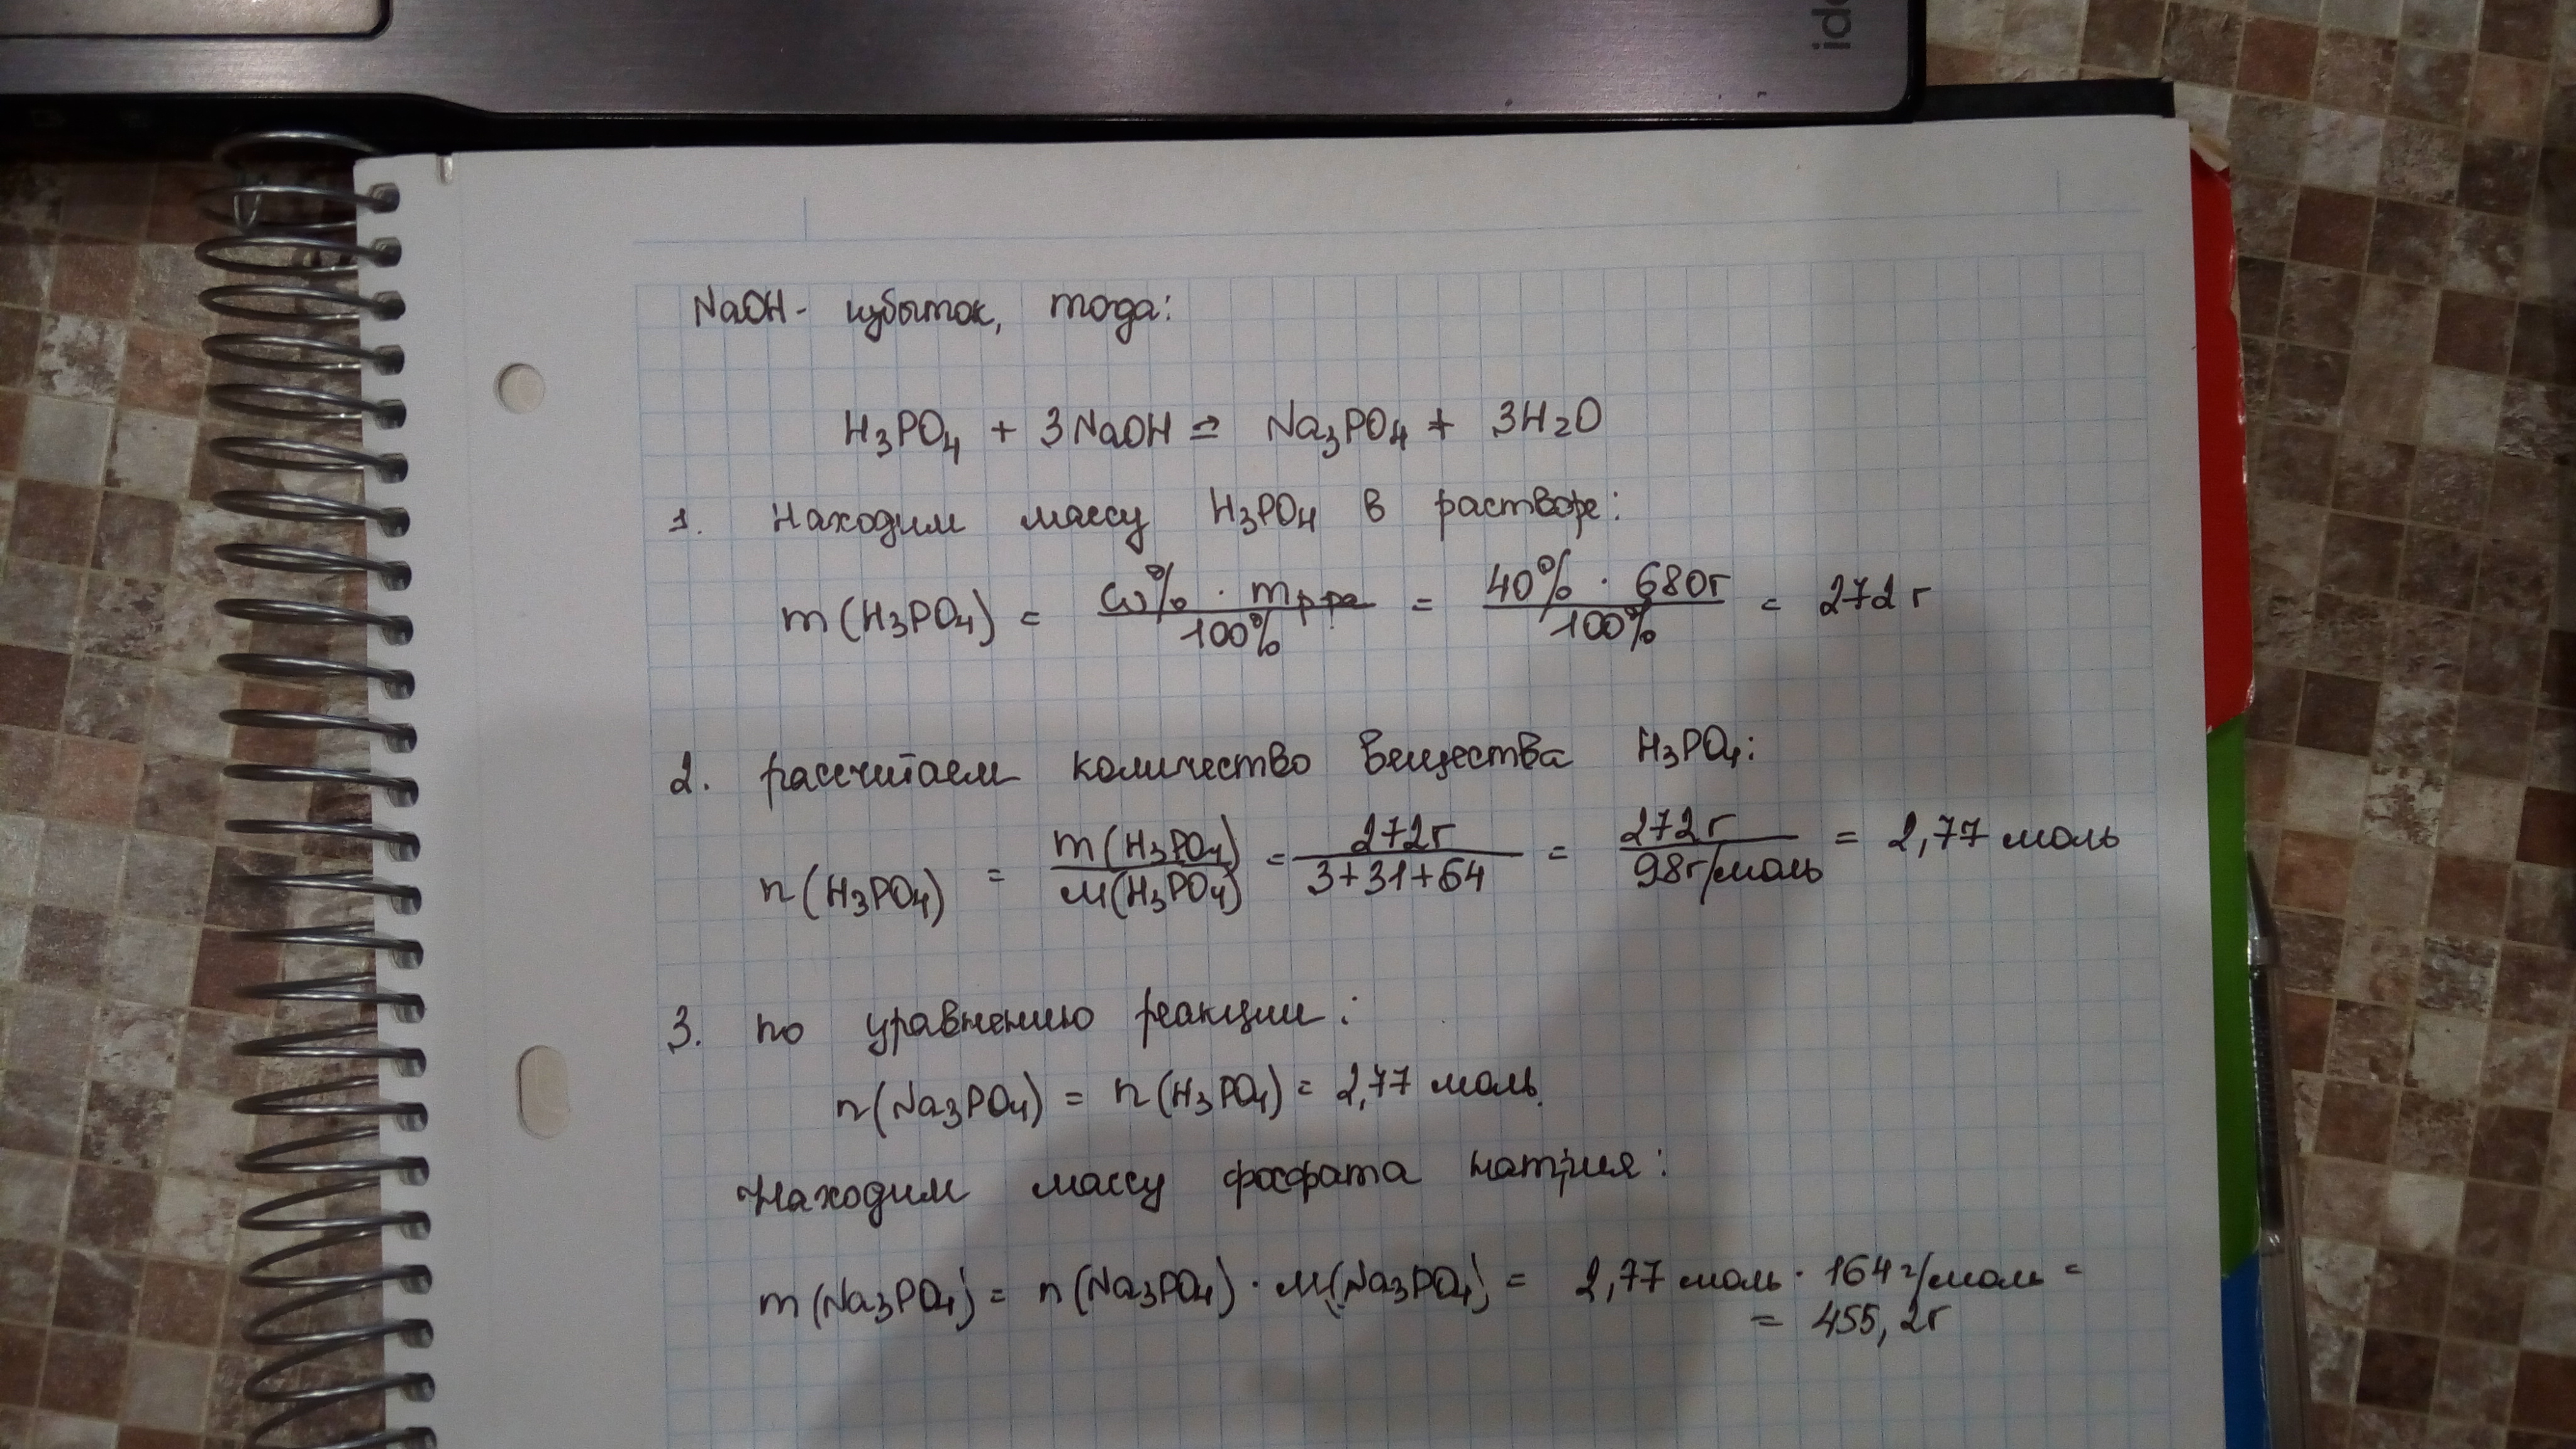 id
NaOH - избыток, тогда:
H₃PO₄ + 3NaOH = Na₃PO₄ + 3H₂O
1. Находим массу H₃PO₄ в растворе:
m(H₃PO₄) = ω% · mр-ра / 100% = 40% · 680г / 100% = 272 г
2. рассчитаем количество вещества H₃PO₄:
n(H₃PO₄) = m(H₃PO₄) / M(H₃PO₄) = 272г / 3+31+64 = 272г / 98г/моль = 2,77 моль
3. по уравнению реакции:
n(Na₃PO₄) = n(H₃PO₄) = 2,77 моль.
Находим массу фосфата натрия:
m(Na₃PO₄) = n(Na₃PO₄) · M(Na₃PO₄) = 2,77 моль · 164 г/моль =
= 455,2г